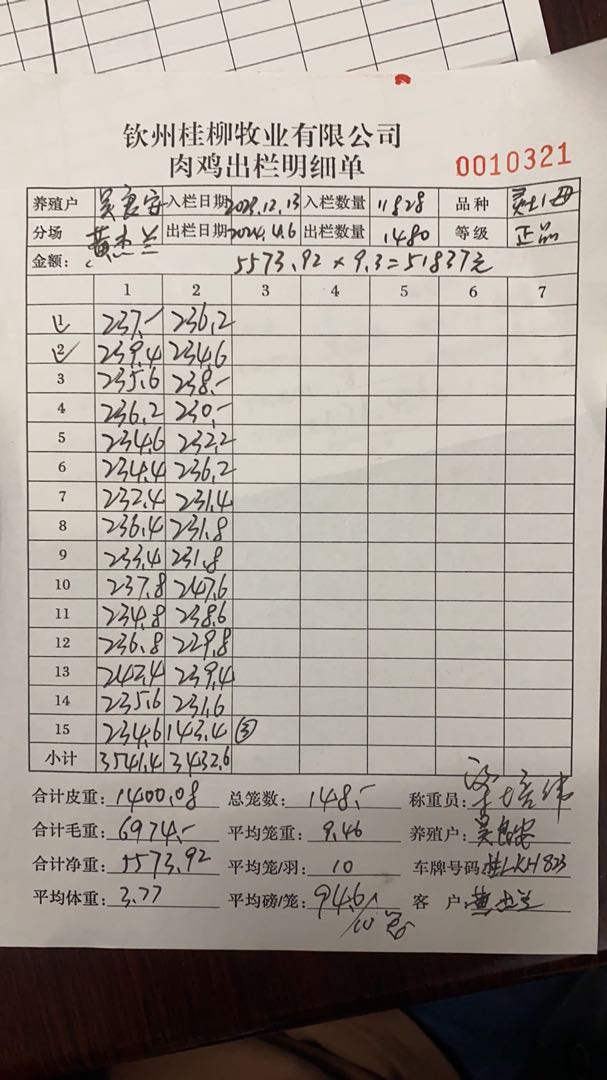 钦州桂柳牧业有限公司
肉鸡出栏明细单
0010321
养殖户 吴良安 入栏日期 2023.12.13 入栏数量 11828 品种
分场 黄杰兰 出栏日期 2024.4.6 出栏数量 1480 等级 正品
金额: 5573.92×9.3=51837元
1 2 3 4 5 6 7
1 237.- 236.2
2 239.4 234.6
3 235.6 238.-
4 236.2 230.-
5 234.6 232.2
6 234.4 236.2
7 232.4 231.4
8 236.4 231.8
9 233.4 231.8
10 237.8 247.6
11 234.8 238.6
12 236.8 229.8
13 242.4 239.4
14 235.6 231.6
15 234.6 143.4 ③
小计 3541.4 3432.6
合计皮重: 1400.08 总笼数: 148.- 称重员:
合计毛重: 6974.- 平均笼重: 9.46 养殖户: 吴良安
合计净重: 5573.92 平均笼/羽: 10 车牌号码 桂LKH823
平均体重: 3.77 平均磅/笼: 94.6/10笼 客户 黄杰兰